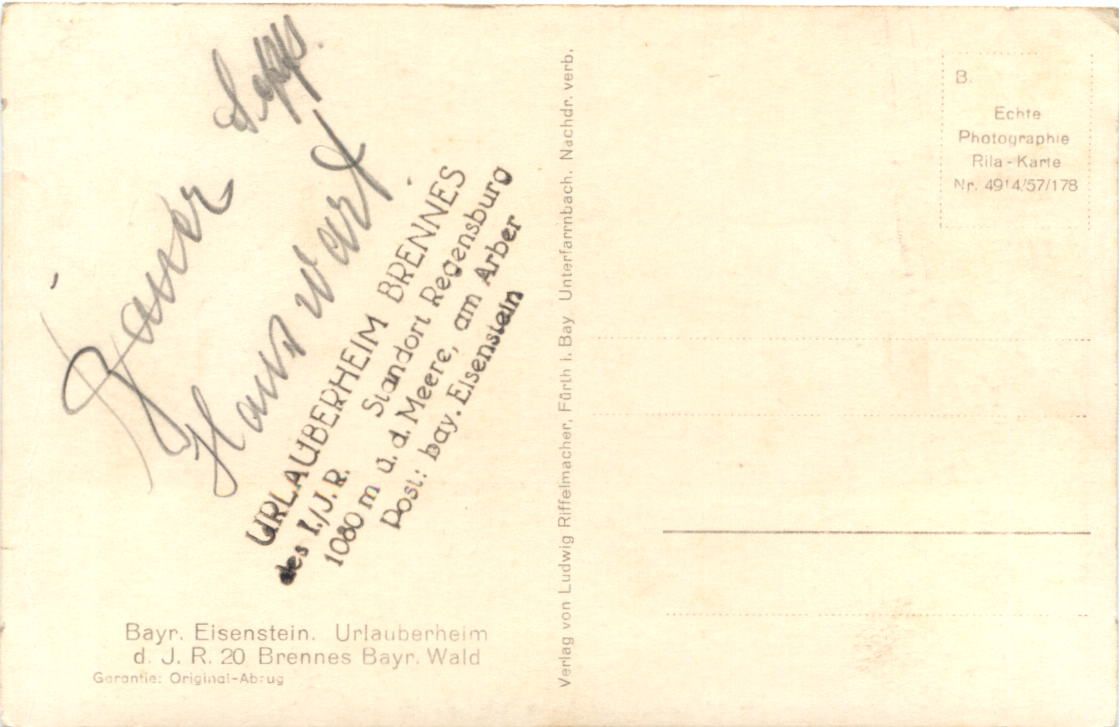 Bauer Sepp.
Hauswart
URLAUBERHEIM BRENNES
des I./J.R. Standort Regensburg
1080 m ü. d. Meere, am Arber
Post: bay. Eisenstein
Bayr. Eisenstein. Urlauberheim
d. J. R. 20 Brennes Bayr. Wald
Garantie: Original-Abzug
Verlag von Ludwig Riffelmacher, Fürth i. Bay Unterfarrnbach. Nachdr. verb.
B.
Echte
Photographie
Rila-Karte
Nr. 4914/57/178